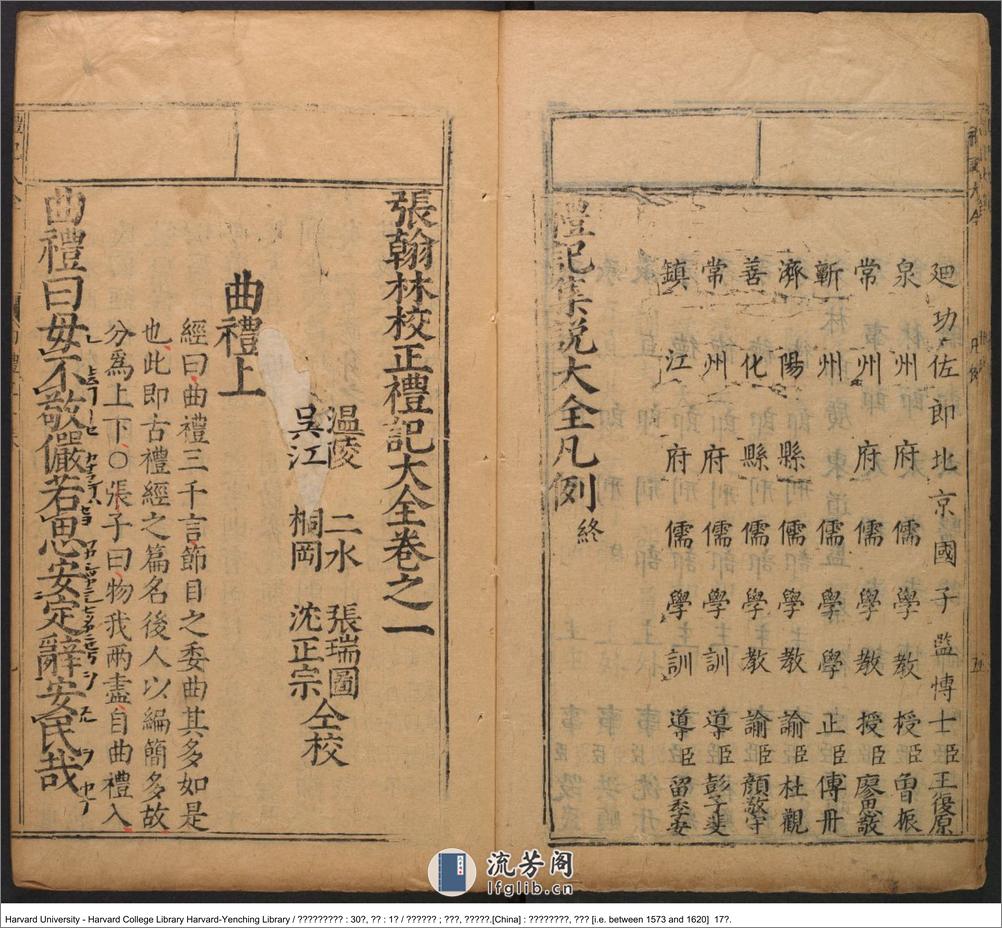 廸功佐郎北京國子監博士臣王復原
泉州府儒學教授臣曾振
常州府儒學教授臣廖思敬
蘄州儒學學正臣傅冊
濟陽縣儒學教諭臣杜觀
善化縣儒學教諭臣顏敬守
常州府儒學訓導臣彭子斐
鎮江府儒學訓導臣留季安
禮記集說大全凡例終
張翰林校正禮記大全卷之一
温陵 二水 張瑞圖
吳江 桐岡 沈正宗 仝校
曲禮上
經曰曲禮三千言節目之委曲其多如是
也此即古禮經之篇名後人以編簡多故
分爲上下○張子曰物我兩盡自曲禮入
曲禮曰毋不敬儼若思安定辭安民哉
流芳阁
lfglib.cn
Harvard University - Harvard College Library Harvard-Yenching Library / ????????? : 30?, ?? : 1? / ?????? ; ???, ?????.[China] : ????????, ??? [i.e. between 1573 and 1620] 17?.